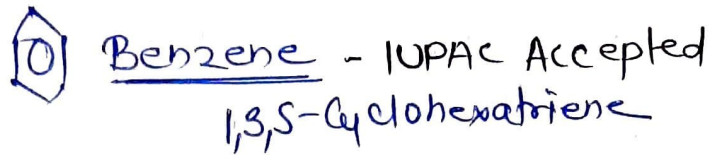 Benzene - IUPAC Accepted
1,3,5-Cyclohexatriene